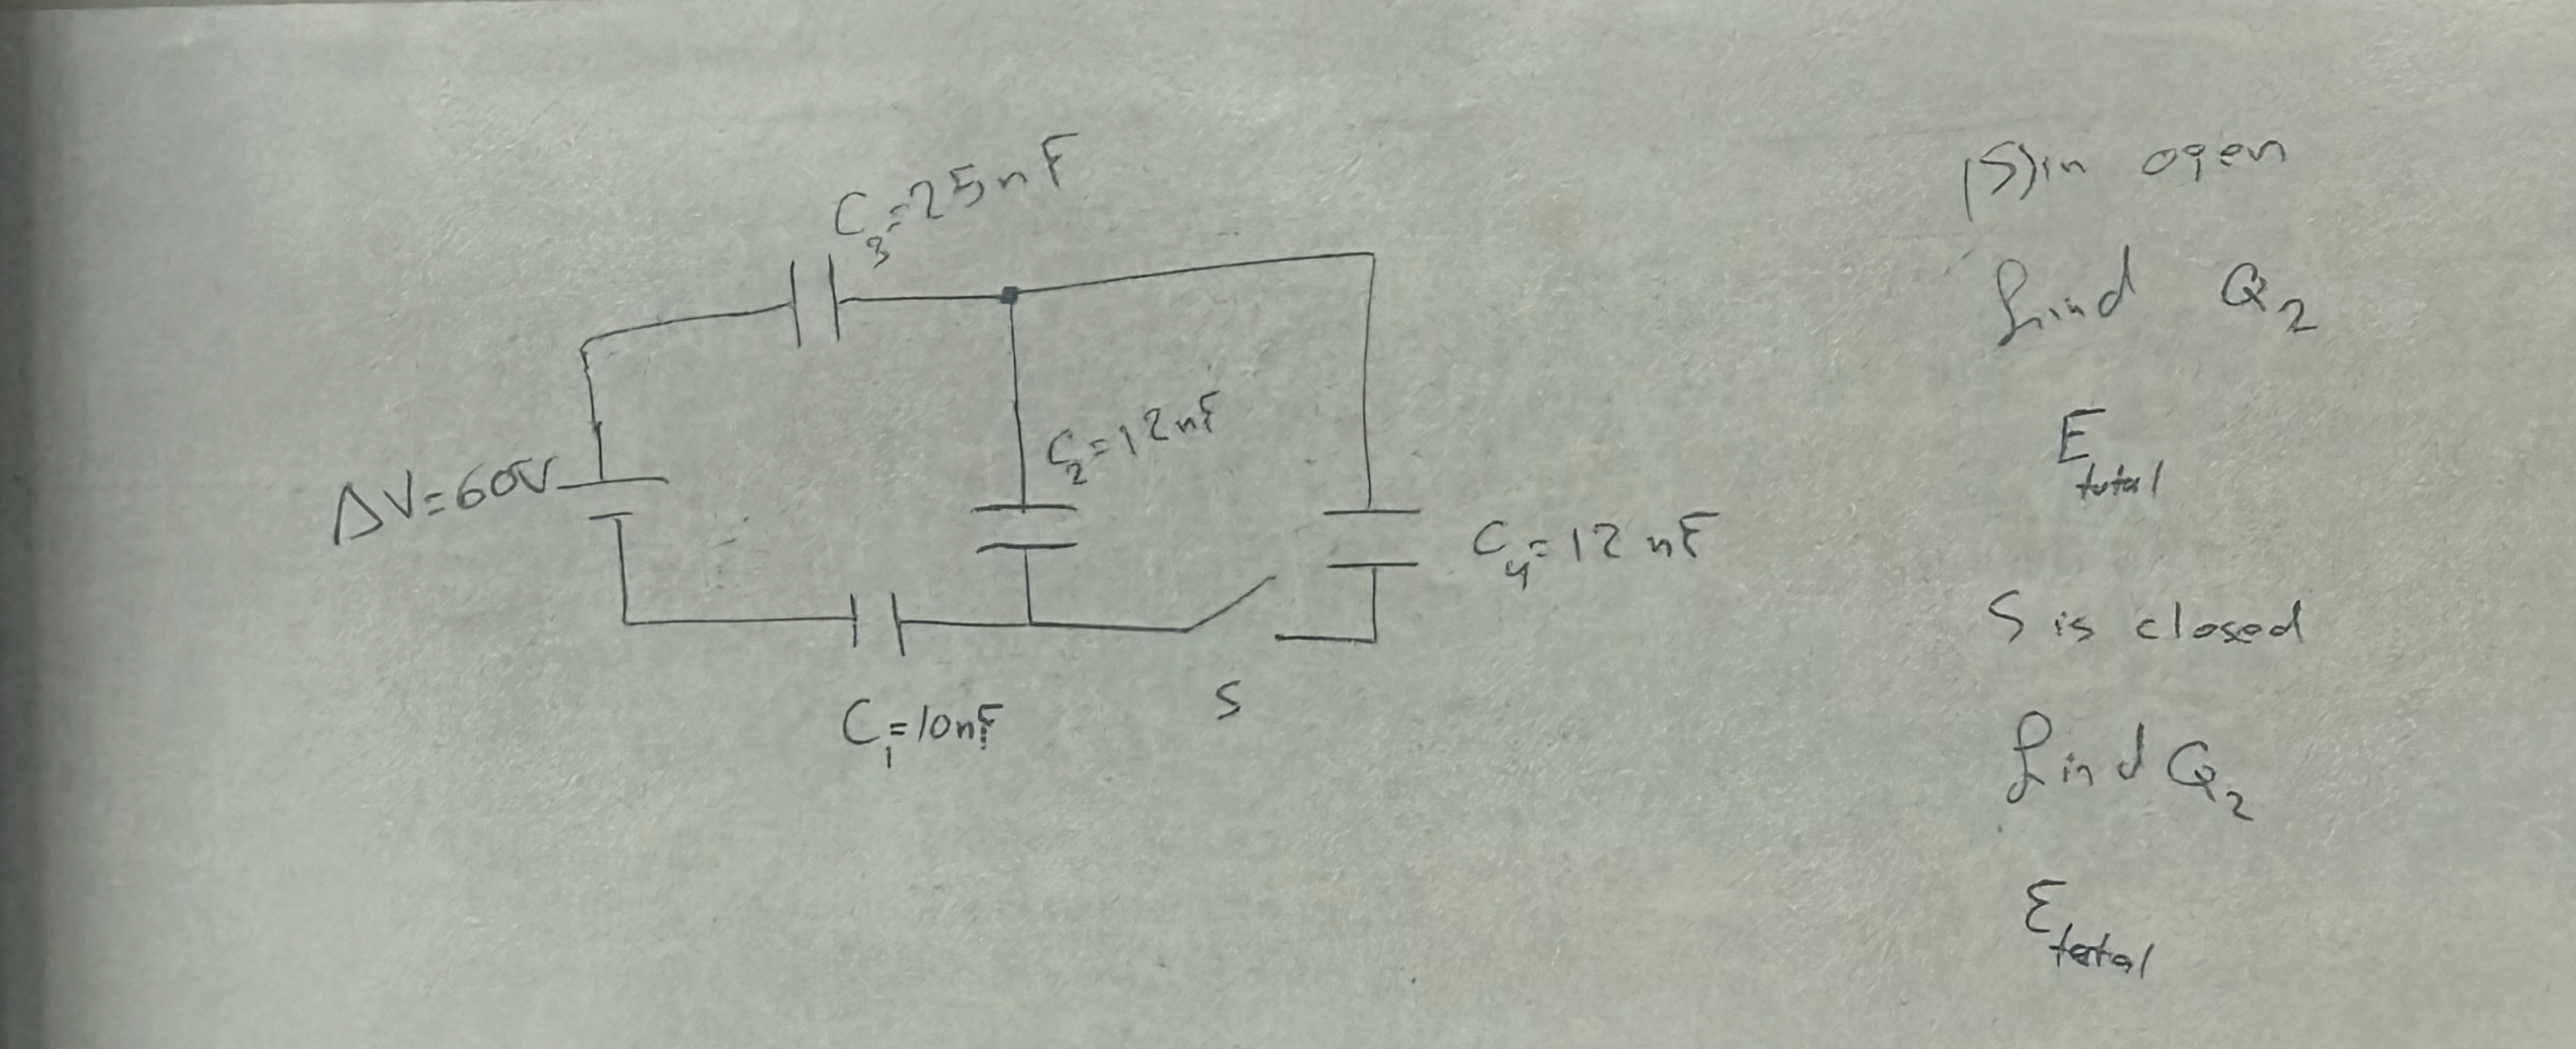 C₃=25nF
ΔV=60V
C₂=12nF
C₄=12nF
C₁=10nF
S
(S)in open
find Q₂
E total
S is closed
find Q₂
E total